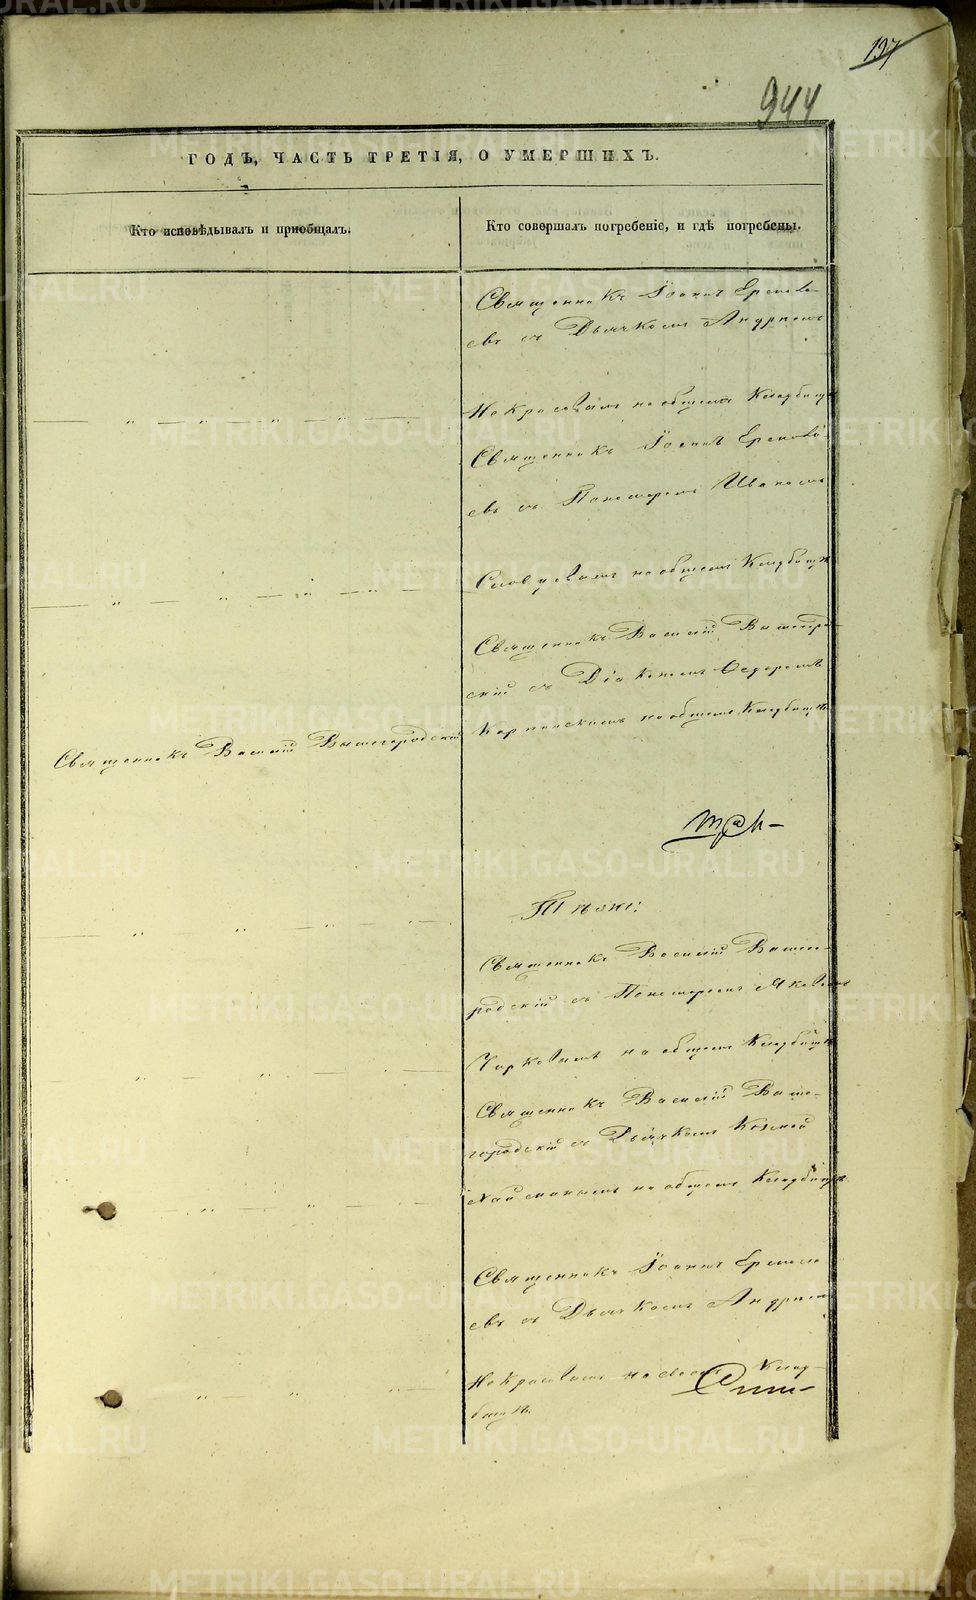 197
944
ГОДЪ, ЧАСТЬ ТРЕТІЯ, О УМЕРШИХЪ.
Кто исповѣдывалъ и пріобщалъ.
Кто совершалъ погребеніе, и гдѣ погребены.
Священникъ Іоаннъ Ермола-
евъ съ Дьячкомъ Андреемъ
Некрасовымъ на общемъ Кладбищѣ
Священникъ Іоаннъ Ермола-
евъ съ Пономаремъ Иваномъ
на общемъ Кладбищѣ
Священникъ Василій Вышегород-
скій съ Діакономъ Федоромъ
на общемъ Кладбищѣ
Священникъ Василій Вышегородскій
Священникъ Василій Вышего-
родскій съ Пономаремъ Яковомъ
на общемъ Кладбищѣ
Священникъ Василій Выше-
городскій съ Дьячкомъ Козмой
на общемъ Кладбищѣ
Священникъ Іоаннъ Ермола-
евъ съ Дьячкомъ Андреемъ
Некрасовымъ на Клад-
бищѣ.
METRIKI.GASO-URAL.RU